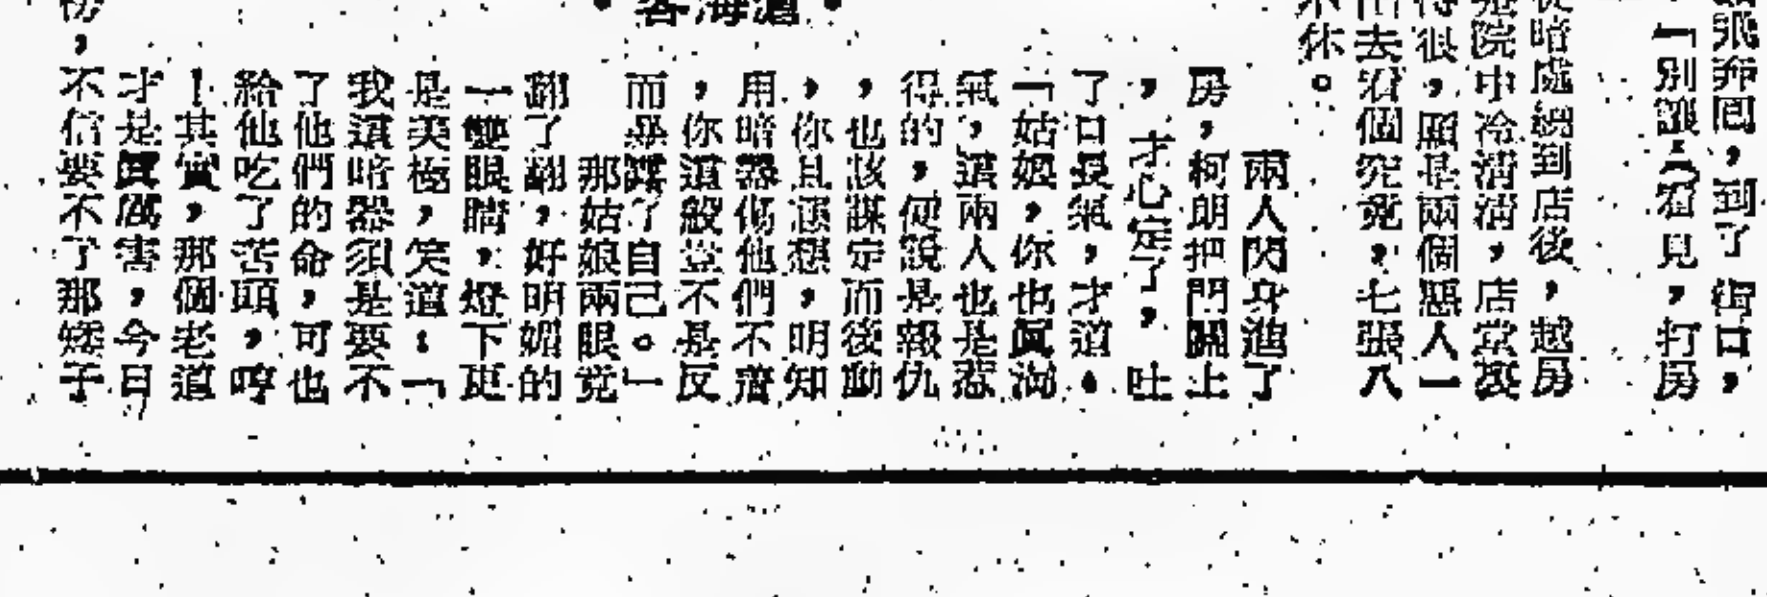 飛奔回，到了街口，
，「別讓人看見，打房
從暗處繞到店後，越房
進院中冷清清，店堂裏
得很，顯是兩個惡人一
出去看個究竟，七張八
不休。
兩人閃身進了
房，柯朗把門關上
，才心定了，吐
了口長氣，才道：
「姑娘，你也眞淘
氣，這兩人也是惹
得的，便說是報仇
，也該謀定而後動
，你且想想，明知
用暗器傷他們不著
，你這般豈不是反
而暴露了自己。」
那姑娘兩眼竟
翻了翻，好明媚的
一雙眼睛，燈下更
是美極，笑道：「
我這暗器須是要不
了他們的命，可也
給他吃了苦頭，哼
！其實，那個老道
才是眞厲害，今日
，不信要不了那矮子
•客海滄•